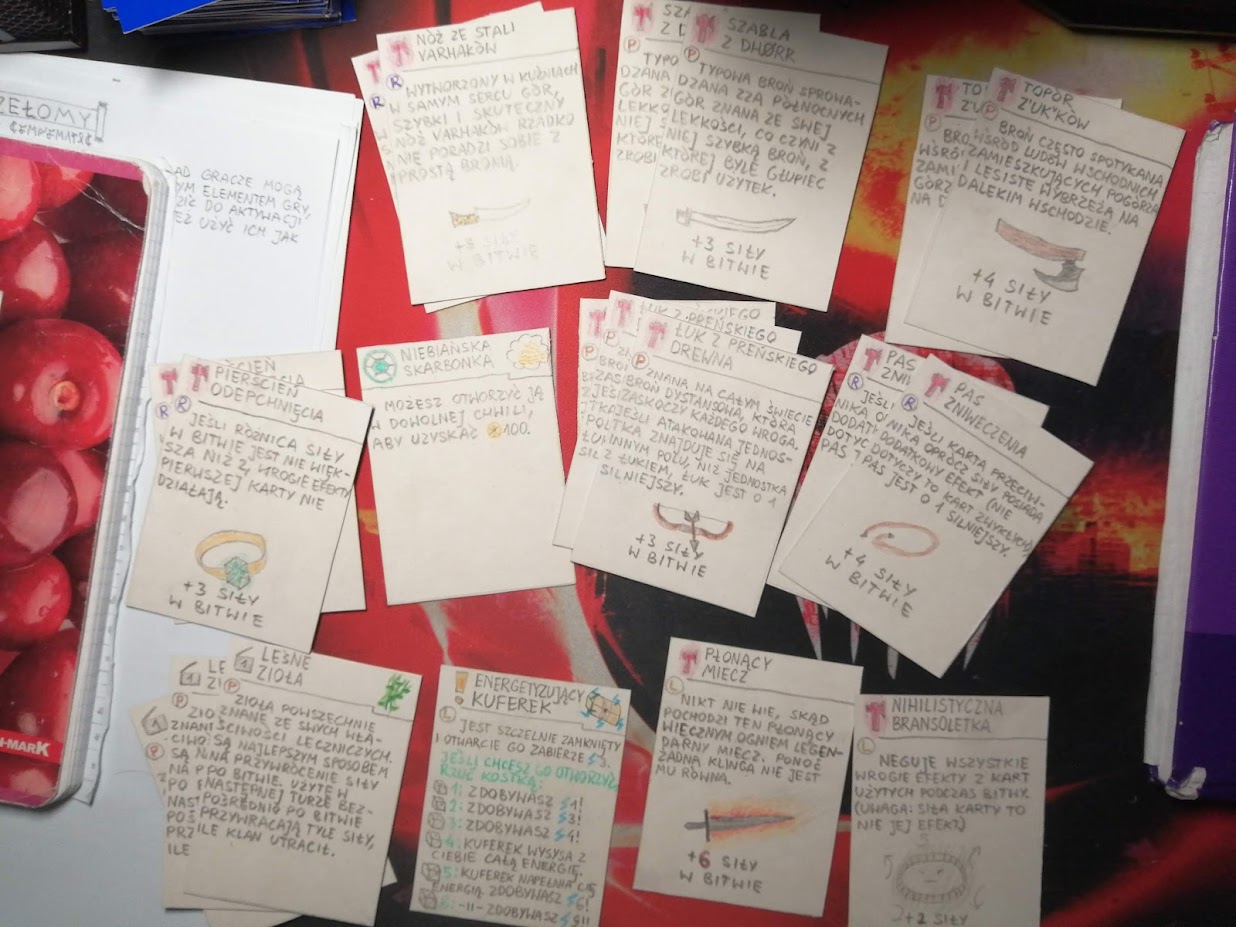 NÓŻ ZE STALI
VARHAKÓW
R
R WYTWORZONY W KUŹNIACH
W SAMYM SERCU GÓR,
SZYBKI I SKUTECZNY
NÓŻ VARHAKÓW RZADKO
NIE PORADZI SOBIE Z
PROSTĄ BRONIĄ.
W BITWIE
SZABLA
Z DHØRR
P
P TYPOWA BROŃ SPROWA-
DZANA ZZA PÓŁNOCNYCH
GÓR ZNANA ZE SWEJ
LEKKOŚCI, CO CZYNI Z
NIEJ SZYBKĄ BROŃ, Z
KTÓREJ BYLE GŁUPIEC
ZROBI UŻYTEK.
+3 SIŁY
W BITWIE
TYPO
DZANA
GÓR Z
LEKKO
NIEJ
KTÓRE
ZROBI
TOPÓR
Z'UK"KÓW
P
P BROŃ CZĘSTO SPOTYKANA
WŚRÓD LUDÓW WSCHODNICH,
ZAMIESZKUJĄCYCH POGÓRZA
I LESISTE WYBRZEŻA NA
DALEKIM WSCHODZIE.
+4 SIŁY
W BITWIE
BRO
WŚRÓ
ZAMI
GÓRZ
NA D
ZEŁOMY
AD GRACZE MOGĄ
YM ELEMENTEM GRY,
ZIĆ DO AKTYWACJI
EŻ UŻYĆ ICH JAK
PIERŚCIEŃ
ODEPCHNIĘCIA
R
R
JEŚLI RÓŻNICA SIŁY
W BITWIE JEST NIE WIĘK-
SZA NIŻ 2, WROGIE EFEKTY
PIERWSZEJ KARTY NIE
DZIAŁAJĄ.
+3 SIŁY
W BITWIE
NIEBIAŃSKA
SKARBONKA
MOŻESZ OTWORZYĆ JĄ
W DOWOLNEJ CHWILI,
ABY UZYSKAĆ 100.
ŁUK Z PREŃSKIEGO
DREWNA
P
P
P ZNANA NA CAŁYM ŚWIECIE
BROŃ DYSTANSOWA, KTÓRA
ZASKOCZY KAŻDEGO WROGA.
JEŚLI ATAKOWANA JEDNOS-
TKA ZNAJDUJE SIĘ NA
INNYM POLU, NIŻ JEDNOSTKA
Z ŁUKIEM, ŁUK JEST O 1
SILNIEJSZY.
+3 SIŁY
W BITWIE
PAS
ZNIWECZENIA
R
R JEŚLI KARTA PRZECIW-
NIKA OPRÓCZ SIŁY POSIADA
DODATKOWY EFEKT (NIE
DOTYCZY TO KART ZWYKŁYCH),
PAS JEST O 1 SILNIEJSZY.
+4 SIŁY
W BITWIE
PAS
LEŚNE
ZIOŁA
1
1
P
P
P
ZIOŁA POWSZECHNIE
ZNANE ZE SWYCH WŁA-
ŚCIWOŚCI LECZNICZYCH.
SĄ NAJLEPSZYM SPOSOBEM
NA PRZYWRÓCENIE SIŁY
PO BITWIE. UŻYTE W
NASTĘPNEJ TURZE BEZ-
POŚREDNIO PO BITWIE
PRZYWRACAJĄ TYLE SIŁY,
ILE KLAN UTRACIŁ.
ENERGETYZUJĄCY
KUFEREK
L JEST SZCZELNIE ZAMKNIĘTY
I OTWARCIE GO ZABIERZE 3.
JEŚLI CHCESZ GO OTWORZYĆ
RZUĆ KOSTKĄ:
1: ZDOBYWASZ 1!
2: ZDOBYWASZ 3!
3: ZDOBYWASZ 4!
4: KUFEREK WYSYSA Z
CIEBIE CAŁĄ ENERGIĘ.
5: KUFEREK NAPEŁNIA CIĘ
ENERGIĄ. ZDOBYWASZ 6!
6: -||- ZDOBYWASZ
PŁONĄCY
MIECZ
L
NIKT NIE WIE, SKĄD
POCHODZI TEN PŁONĄCY
WIECZNYM OGNIEM LEGEN-
DARNY MIECZ. PONOĆ
ŻADNA KLINGA NIE JEST
MU RÓWNA.
+6 SIŁY
W BITWIE
NIHILISTYCZNA
BRANSOLETKA
L
NEGUJE WSZYSTKIE
WROGIE EFEKTY Z KART
UŻYTYCH PODCZAS BITWY.
(UWAGA: SIŁA KARTY TO
NIE JEJ EFEKT)
+2 SIŁY
N-MARK